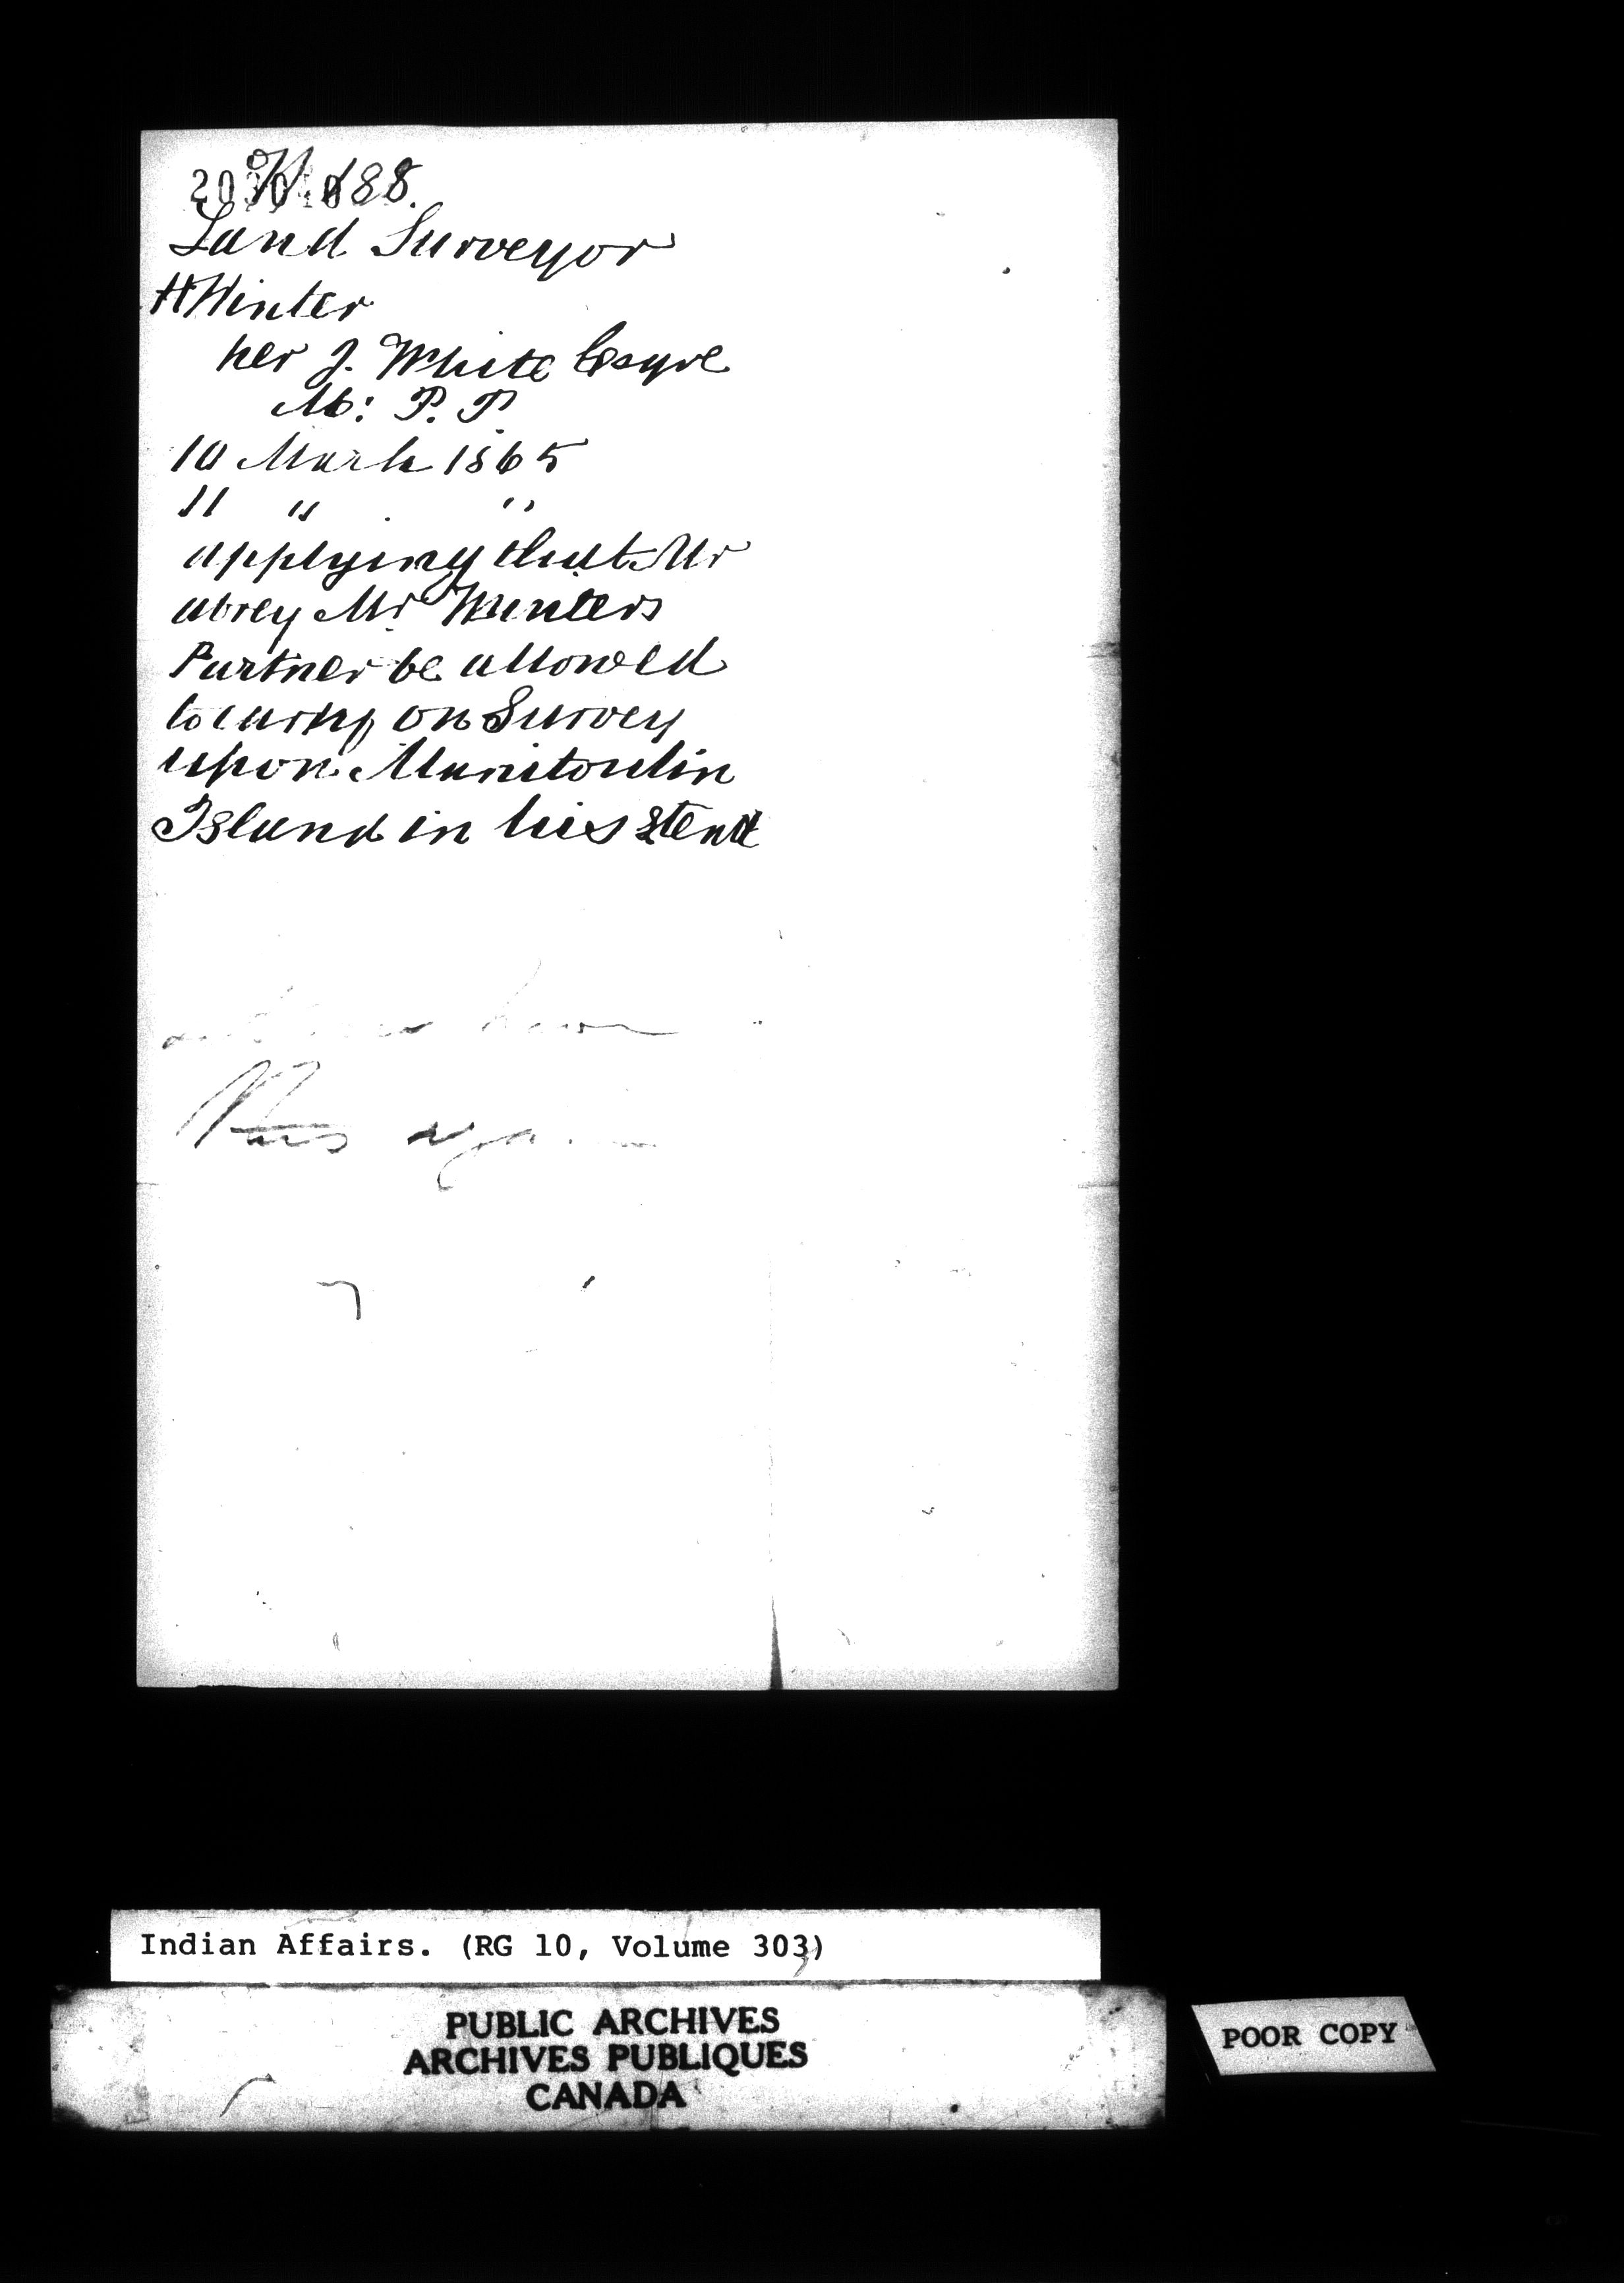 188.
Land Surveyor
H Winter
per J. White Esqre
M: P. P.
10 March 1865
11 " "
applying that Mr
abrey Mr Winters
Partner be allowed
to carry on Survey
upon Manitoulin
Island in his stead
this again
Indian Affairs. (RG 10, Volume 303)
PUBLIC ARCHIVES
ARCHIVES PUBLIQUES
CANADA
POOR COPY